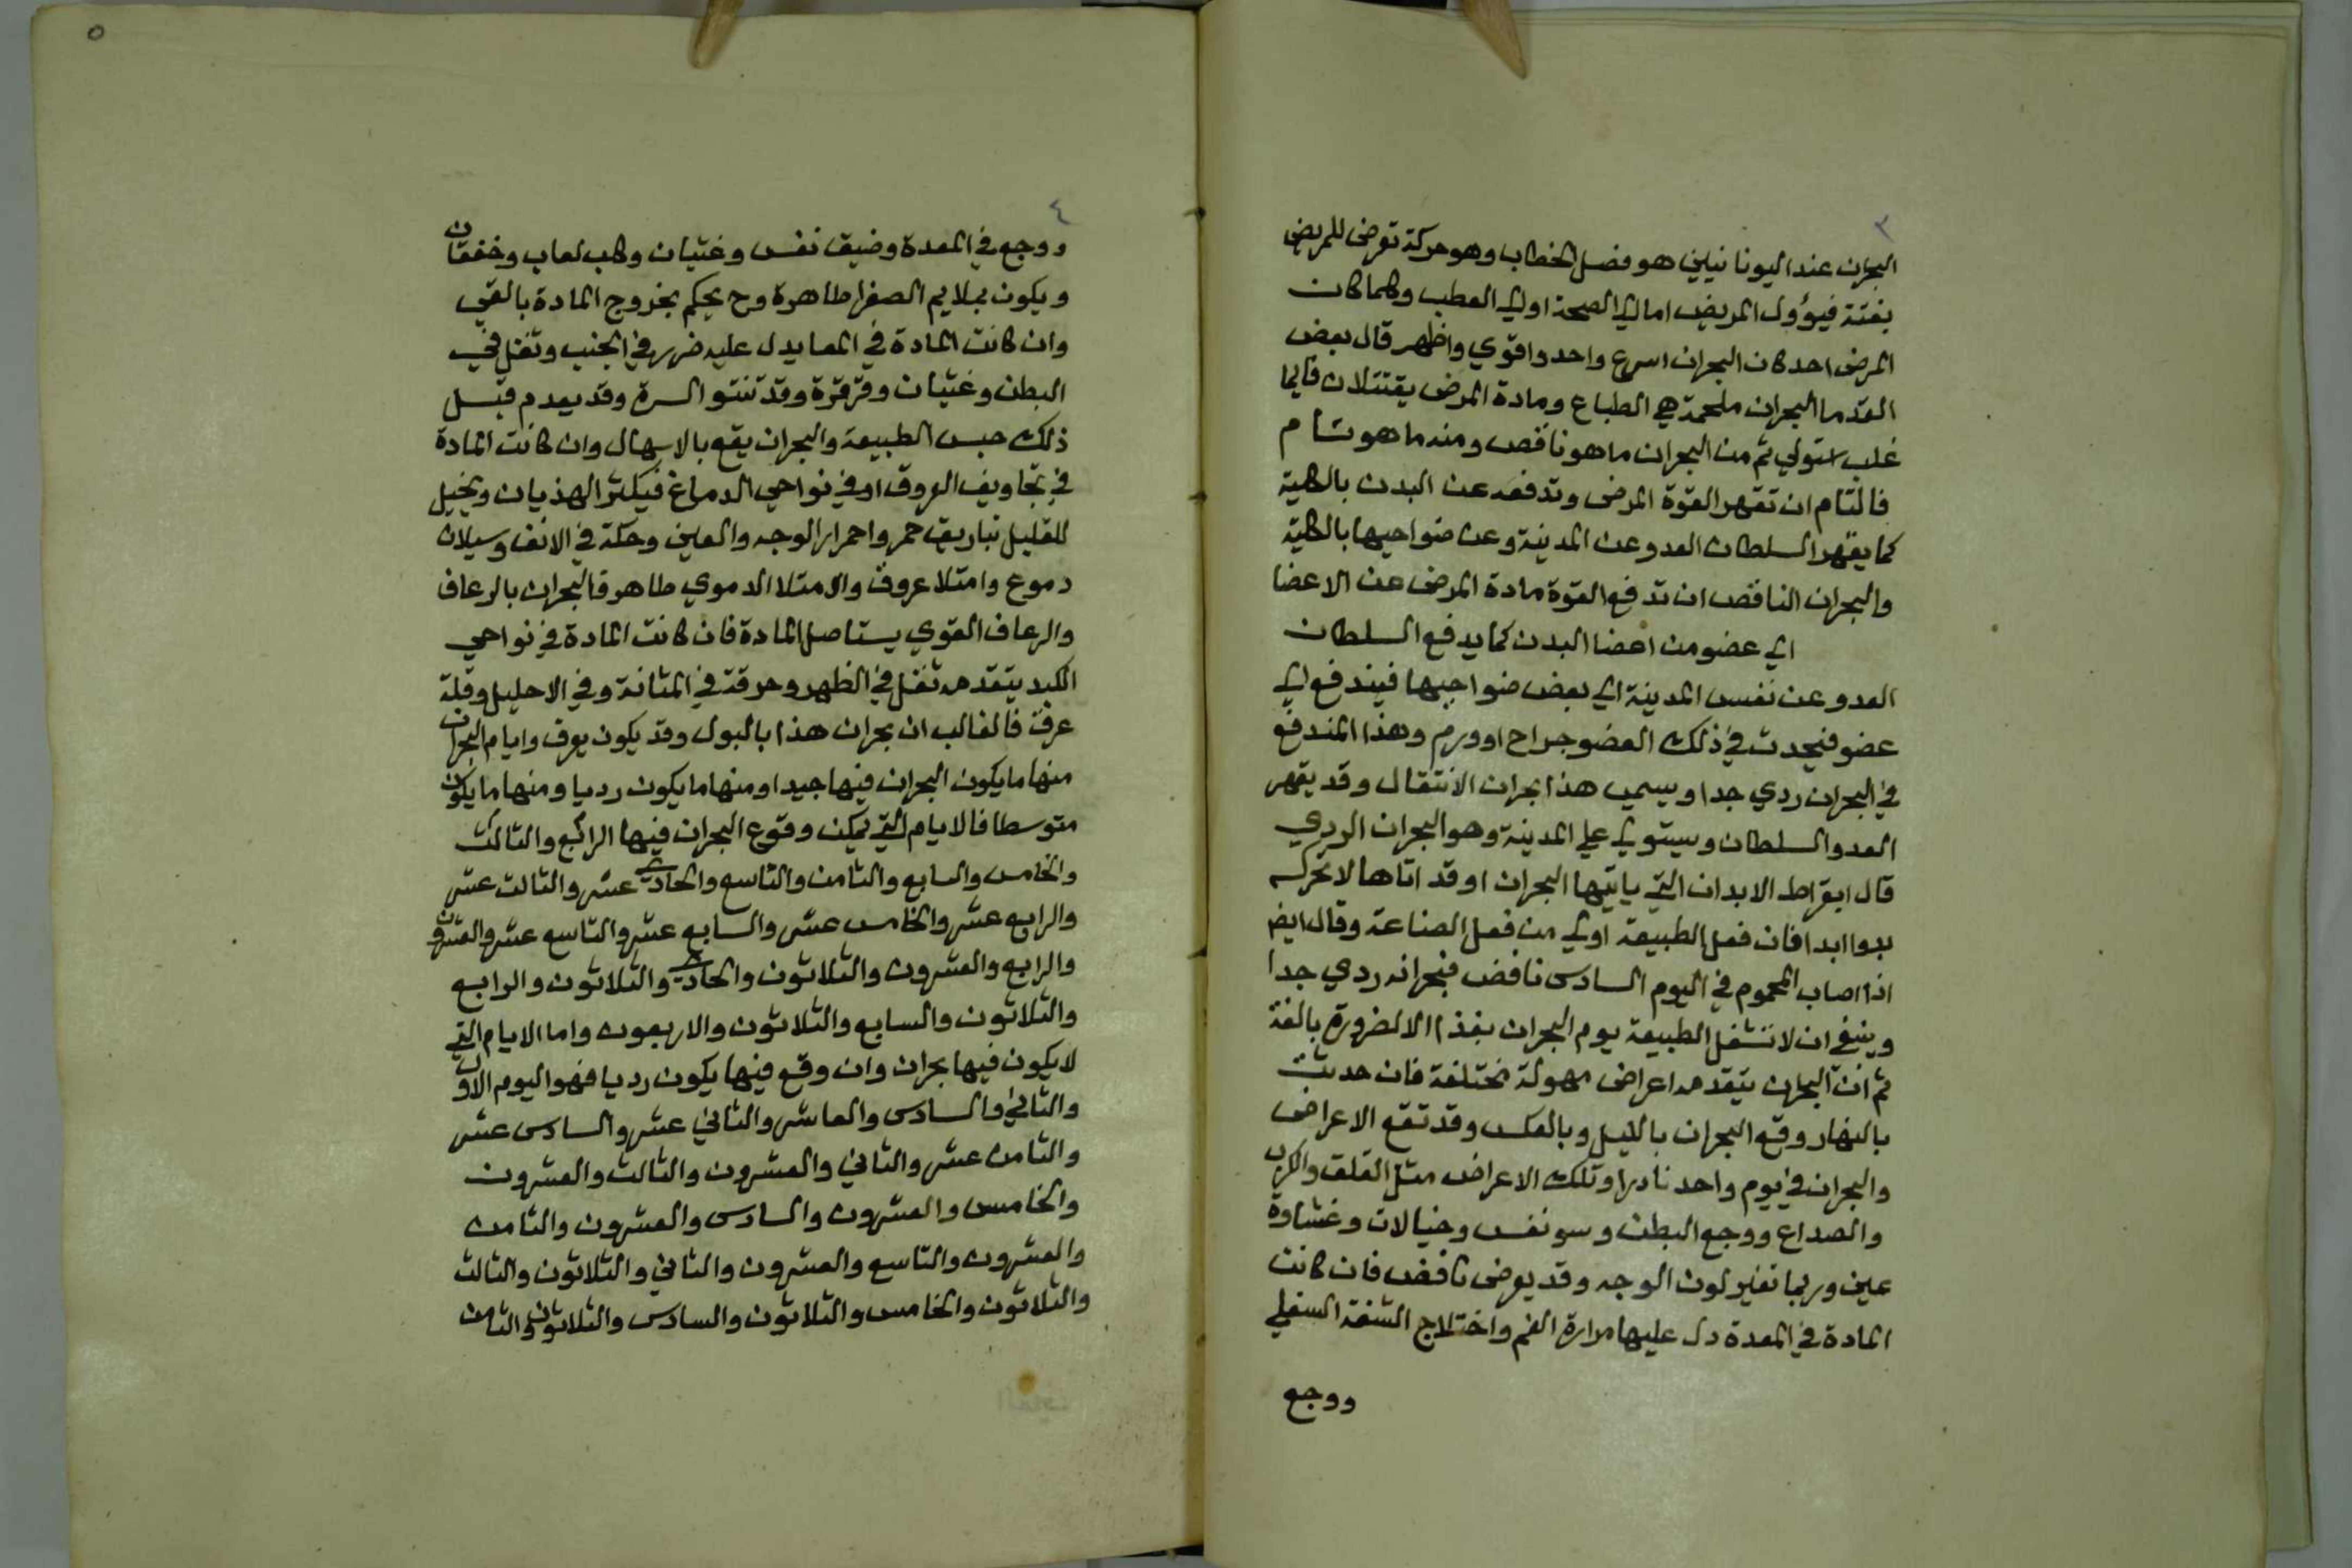 ٣
البحران عند اليونانيين هو فصل الخطاب وهو حركة تعرض للمريض
بغتة فيؤول المريض اما الي الصحة او الي العطب وكلما كان
المرض احد كان البحران اسرع واحد واقوي واظهر قال بعض
القدما البحران ملحمة هي الطباع ومادة المرض يقتتلان فايما
غلب استولي ثم من البحران ما هو ناقص ومنه ما هو تام
فالتام ان تقهر القوة المرض وتدفعه عن البدن بالكلية
كما يقهر السلطان العدو عن المدينة وعن ضواحيها بالكلية
والبحران الناقص ان تدفع القوة مادة المرض عن الاعضا
الي عضو من اعضا البدن كما يدفع السلطان
العدو عن نفس المدينة الي بعض ضواحيها فيندفع الي
عضو فيحدث في ذلك العضو جراح او ورم وهذا المندفع
في البحران ردي جدا ويسمي هذا بحران الانتقال وقد يقهر
العدو السلطان ويستولي علي المدينة وهو البحران الردي
قال ابقراط الابدان التي ياتيها البحران او قد اتاها لا تحركه
بدوا ابدا فان فعل الطبيعة اولي من فعل الصناعة وقال ايض
اذا اصاب المحموم في اليوم السادس نافض فبحرانه ردي جدا
وينبغي ان لا تشغل الطبيعة يوم البحران بغذا الا لضرورة بالغة
ثم ان البحران يتقدمه اعراض مهولة مختلفة فان حدثت
بالنهار وقع البحران بالليل وبالعكس وقد تقع الاعراض
والبحران في يوم واحد نادرا وتلك الاعراض مثل القلق والكرب
والصداع ووجع البطن وسو نفس وخيالات وغشاوة
عين وربما تغير لون الوجه وقد يعرض نافض فان كانت
المادة في المعدة دل عليها مرارة الفم واختلاج الشفة السفلي
ووجع
٥
٤
ووجع في المعدة وضيق نفس وغثيان وحلب لعاب وخفقان
ويكون بملايم الصفرا طاهرة وح يحكم بخروج المادة بالقي
وان كانت المادة في المعا يدل عليه ضرر في الجنب وثقل في
البطن وغثيان وقرقرة وقد تنتو السرة وقد يعدم قبل
ذلك حبس الطبيعة والبحران يقع بالاسهال وان كانت المادة
في تجاويف العروق او في نواحي الدماغ فيكثر الهذيان ويخيل
للقليل تباريق حمر واحمرار الوجه والعين وحكة في الانف وسيلان
دموع وامتلا عروق والامتلا الدموي طاهر فالبحران بالرعاف
والرعاف القوي يستاصل المادة فان كانت المادة في نواحي
الكبد يتقدمه ثقل في الظهر وحرقة في المثانة وفي الاحليل وقلة
عرق فالغالب ان بحران هذا بالبول وقد يكون يعرق وايام البحران
منها ما يكون البحران فيها جيدا ومنها ما يكون رديا ومنها ما يكون
متوسطا فالايام التي يمكن وقوع البحران فيها الرابع والثالث
والخامس والسابع والثامن والتاسع والحادي عشر والثالث عشر
والرابع عشر والخامس عشر والسابع عشر والتاسع عشر والعشرون
والرابع والعشرون والثلاثون والحادي والثلاثون والرابع
والثلاثون والسابع والثلاثون والاربعون واما الايام التي
لا يكون فيها بحران وان وقع فيها يكون رديا فهو اليوم الاول
والثاني والسادس والعاشر والثاني عشر والسادس عشر
والثامن عشر والثاني والعشرون والثالث والعشرون
والخامس والعشرون والسادس والعشرون والثامن
والعشرون والتاسع والعشرون والثاني والثلاثون والثالث
والثلاثون والخامس والثلاثون والسادس والثلاثون والثامن